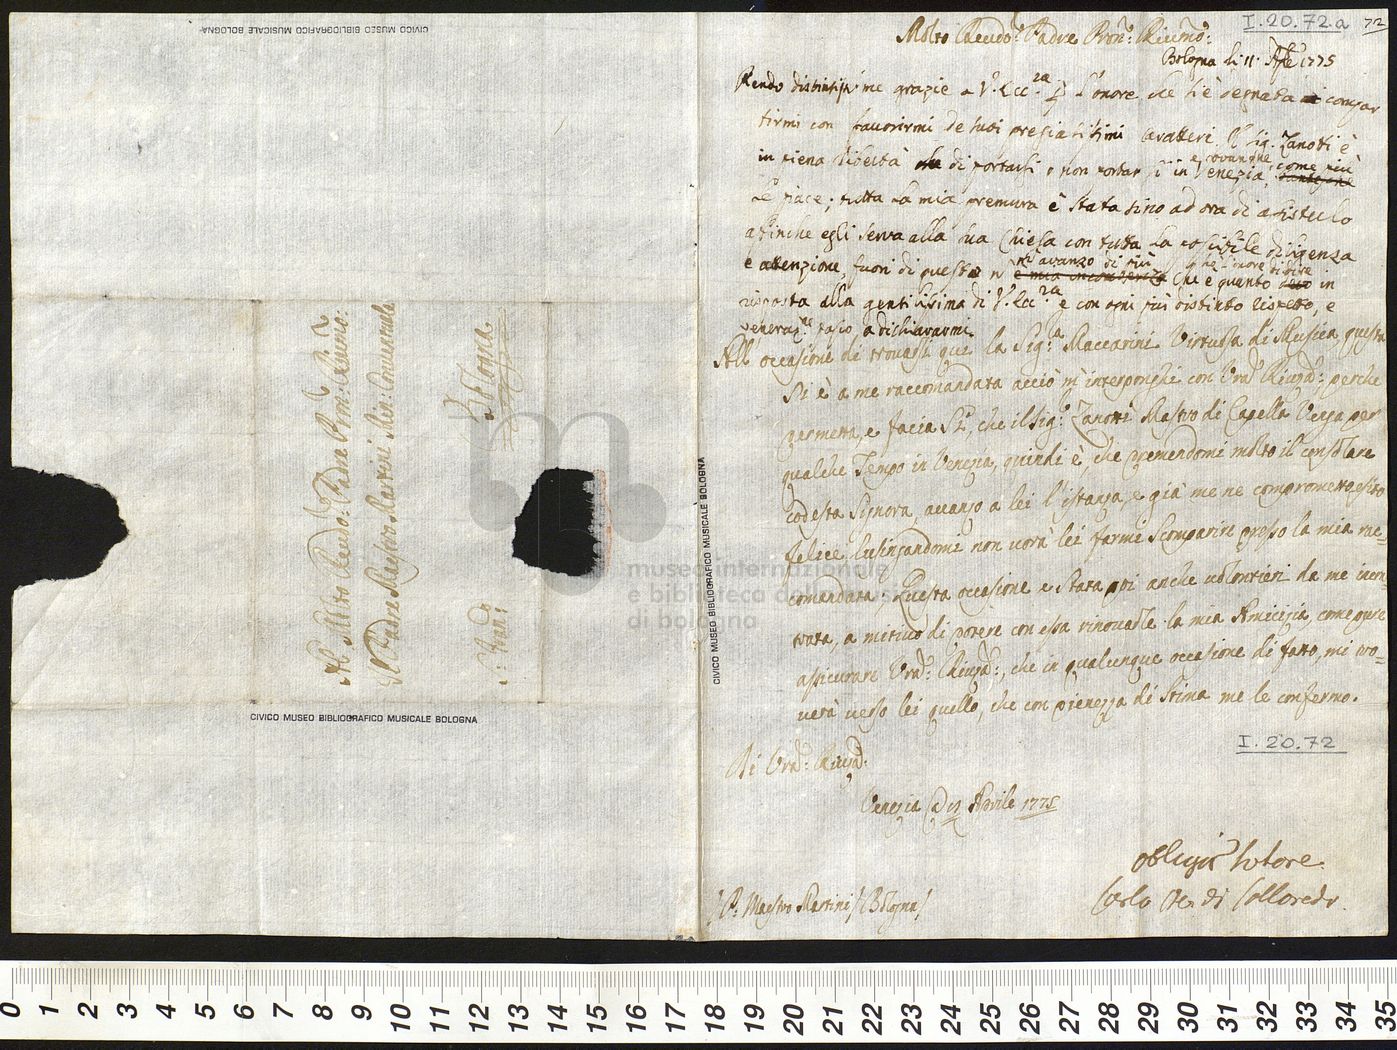 CIVICO MUSEO BIBLIOGRAFICO MUSICALE BOLOGNA
Al Molto Revdo: Padre Pron: Riumo:
Il Padre Maestro Martini Min: Conventuale
Bologna
S: Franco
CIVICO MUSEO BIBLIOGRAFICO MUSICALE BOLOGNA
CIVICO MUSEO BIBLIOGRAFICO MUSICALE BOLOGNA
museo internazionale
e biblioteca della musica
di bologna
I.20.72.a 72
Molto Revdo: Padre Pron: Riumo:
Bologna li 11 Aple 1775
Rendo distintissime grazie a V. Ecc.za l'onore che si è degnata compar
tirmi con favorirmi de suoi pregiatissimi caratteri. Il Sig. Zanotti è
in piena libertà di portarsi o non portarsi in Venezia, e ovunque come più
Le piace; tutta la mia premura è stata sino ad ora di assisterlo
affinche egli serva alla sua Chiesa con tutta la possibile diligenza
e attenzione, fuori di questo n avanzo di più che è quanto ho l'onore di dire in
risposta alla gentilissima di V. Ecc.za e con ogni più distinto rispetto, e
veneraz.ne passo a dichiararmi
All' occasione di trovarsi que la Sig:a Maccarini Virtuosa di Musica, questa
Si è a me raccomandata acciò m' interponghi con Vra: Riuza: perche
permetta, e faccia Si, che il Sig: Zanotti Mastro di Capella Venga per
qualche Tempo in Venezia, quindi è, che premendomi molto il consolare
codesta Signora, avanzo a lei l'istanza, e già me ne comprometto esito
felice lusingandomi non vorà lei farmi Scomparire presso la mia rac=
comandata. Questa occasione e Stata poi anche volontieri da me incon
trata, a motivo di potere con essa rinovarle la mia Amicizia, come pure
assicurare Vra: Riuza:, che in qualunque occasione di fatto, mi tro=
verà verso lei quello, che con pienezza di Stima me le confermo.
I.20.72
Di Vra: Riuza:
Venezia Aprile 1775
P: Maestro Martini / Bologna /
Carlo di Colloredo
0 1 2 3 4 5 6 7 8 9 10 11 12 13 14 15 16 17 18 19 20 21 22 23 24 25 26 27 28 29 30 31 32 33 34 35